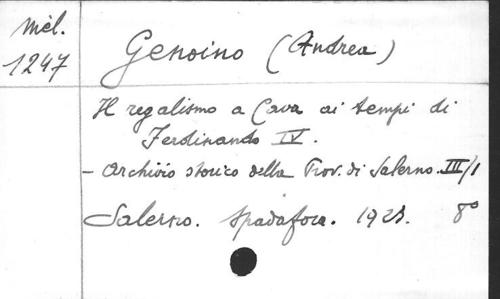 Mél.
1247
Genoino (Andrea)
Il regalismo a Cava ai tempi di
Ferdinando IV.
- Archivio storico della Prov. di Salerno. III/1
Salerno. Spadafora. 1923. 8°